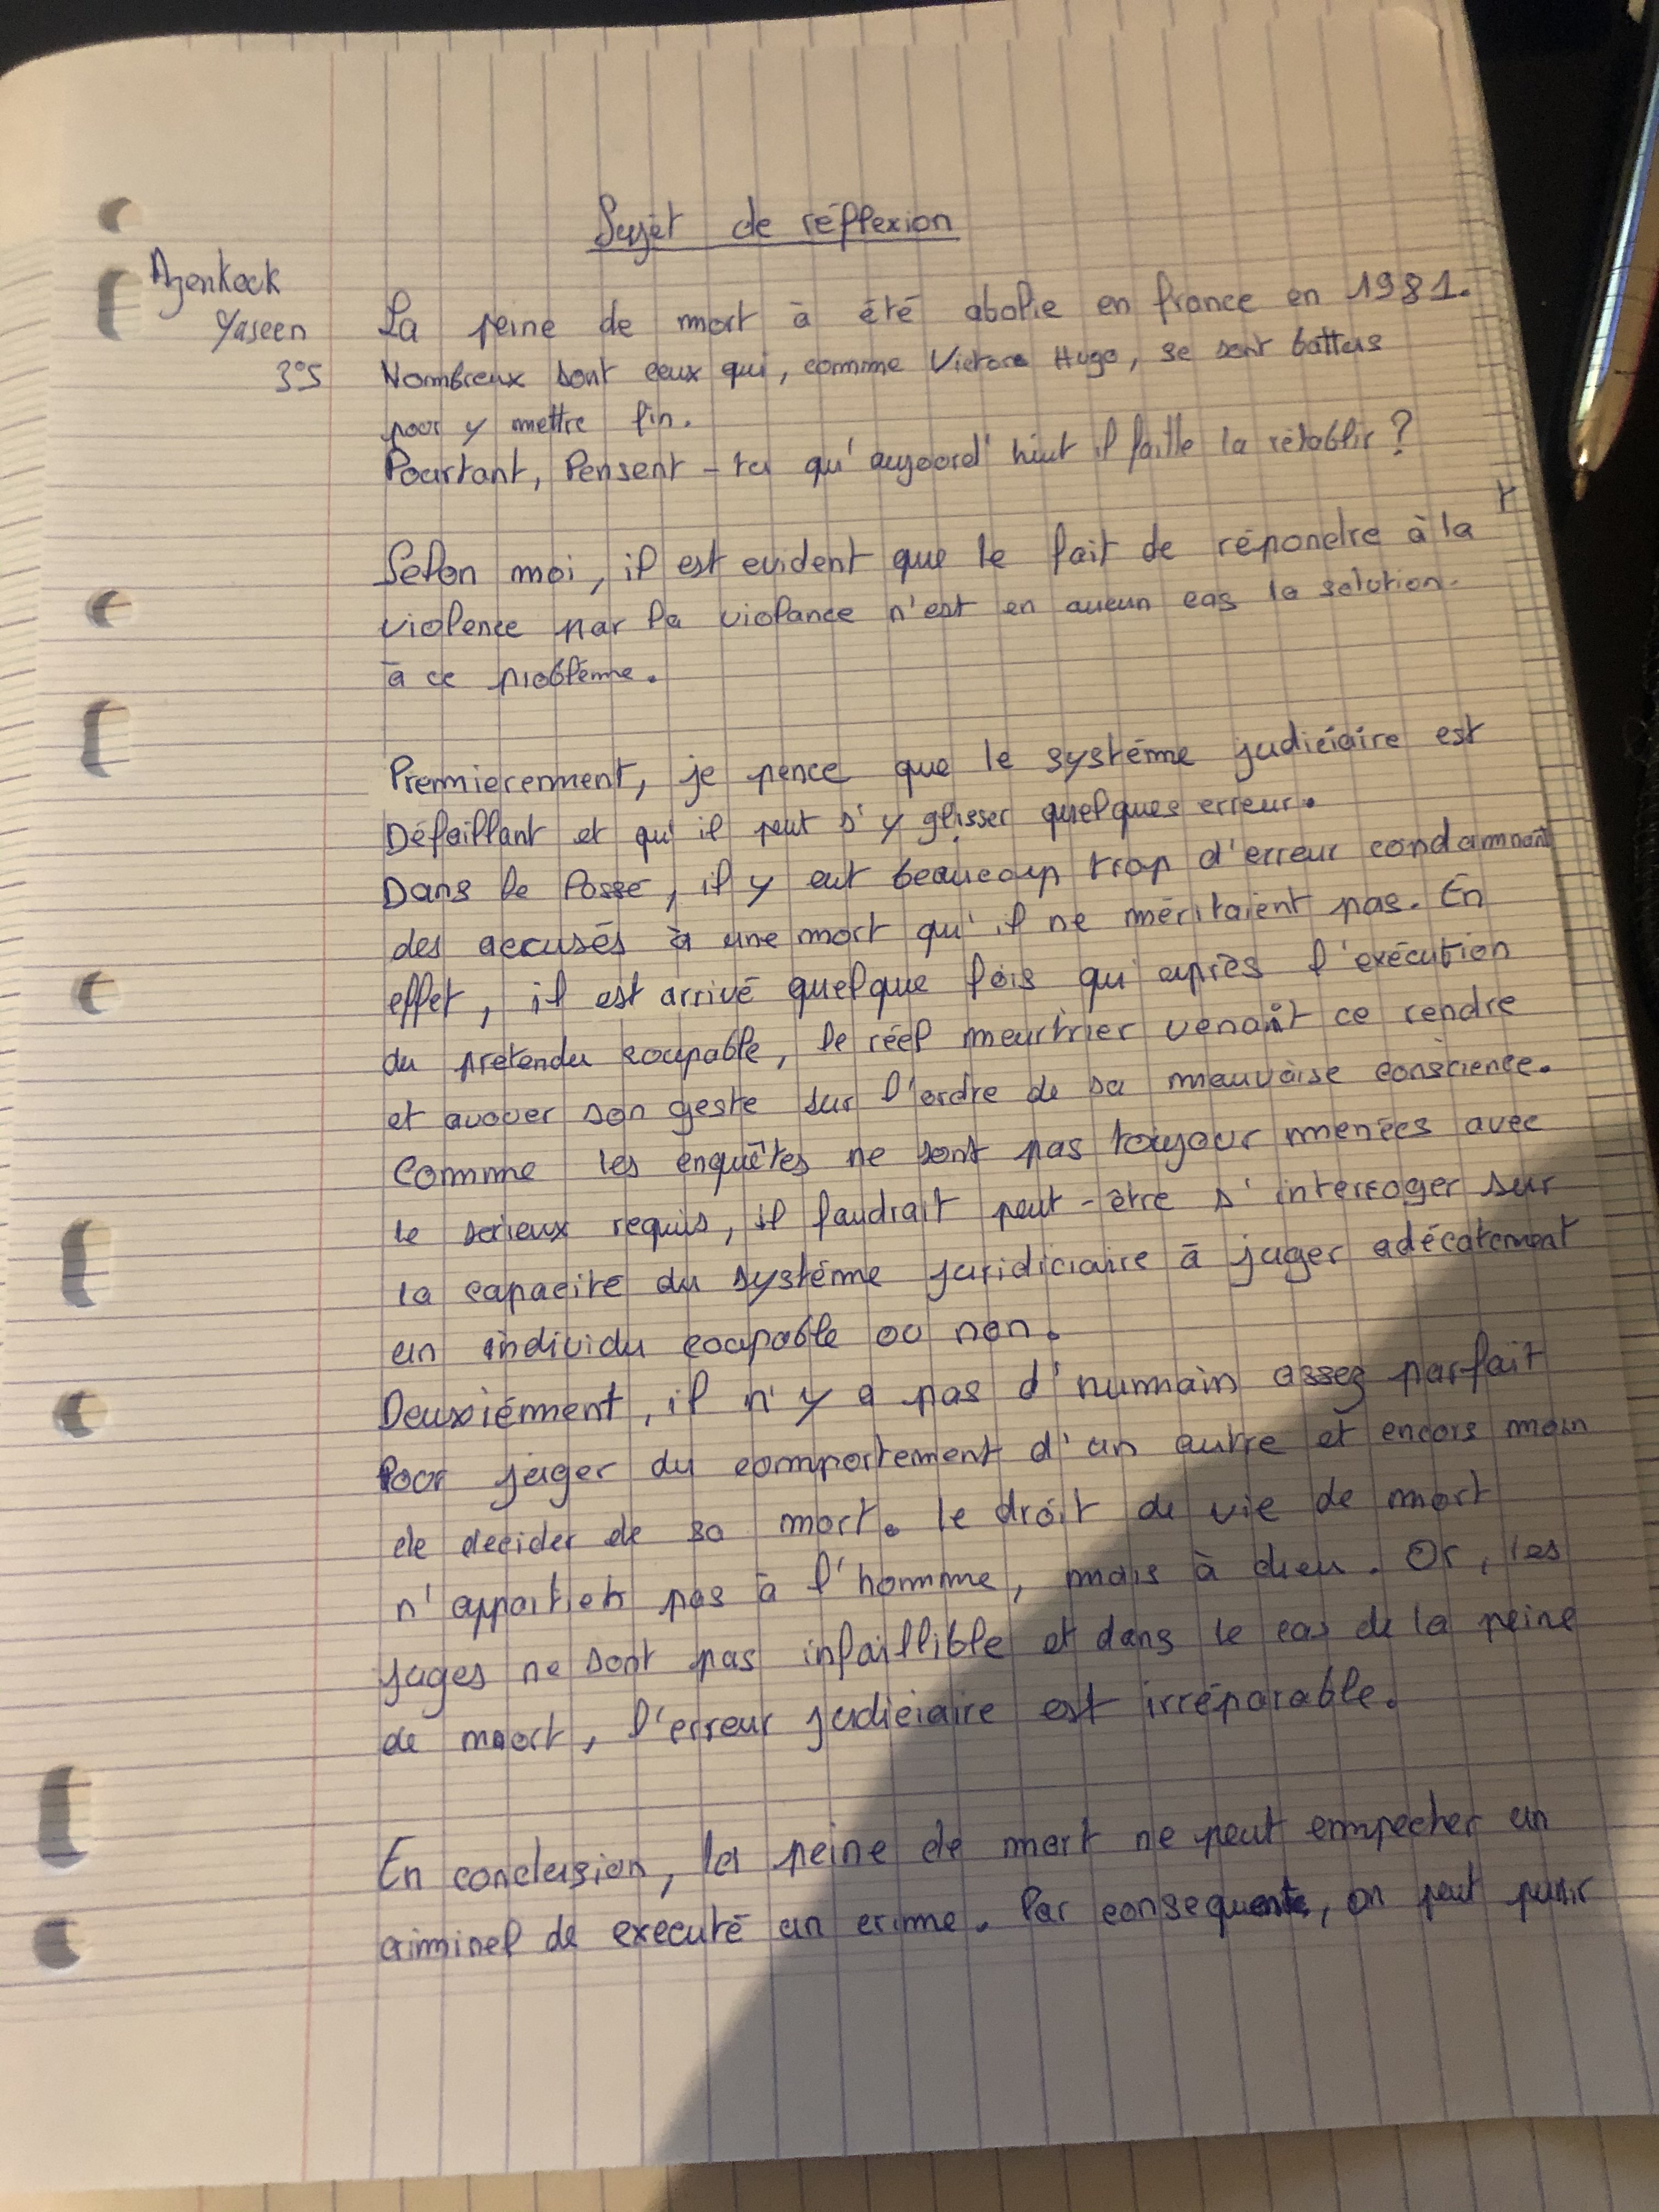 Sujet de réflexion
Azenkock
Yaseen
3°5
La peine de mort à été abolie en france en 1981.
Nombreux sont ceux qui, comme Victore Hugo, se sont battus
pour y mettre fin.
Pourtant, Pensent-tu qu'aujourd'hiut il faille la rétablir ?
Selon moi, il est evident que le fait de répondre à la
violence par la violance n'est en aucun cas la solution.
à ce problème.
Premierement, je pence que le systéme judiciaire est
Défaillant et qu'il peut s'y glisser quelques erreur.
Dans le Passé, il y eut beaucoup trop d'erreur condamnant
des accusés à une mort qu'il ne méritaient pas. En
effet, il est arrivé quelque fois qu'après l'exécution
du prétendu coupable, le réel meurtrier venait ce rendre
et avouer son geste sur l'ordre de sa mauvaise conscience.
Comme les enquêtes ne sont pas toujour menées avec
le serieux requis, il faudrait peut-être s'interroger sur
la capacité du systéme juridiciaire à juger adécatement
un individu coupable ou non.
Deuxiémment, il n'y a pas d'humain assez parfait
Pour juger du comportement d'un autre et encors moin
de decider de sa mort. le droit de vie de mort
n'appartien pas à l'homme, mais à dieu. Or, les
juges ne sont pas infaillible et dans le cas de la peine
de moort, l'erreur judiciaire est irréparable.
En conclusion, la peine de mort ne peut empecher un
criminel de executé un crime. Par consequente, on peut punir